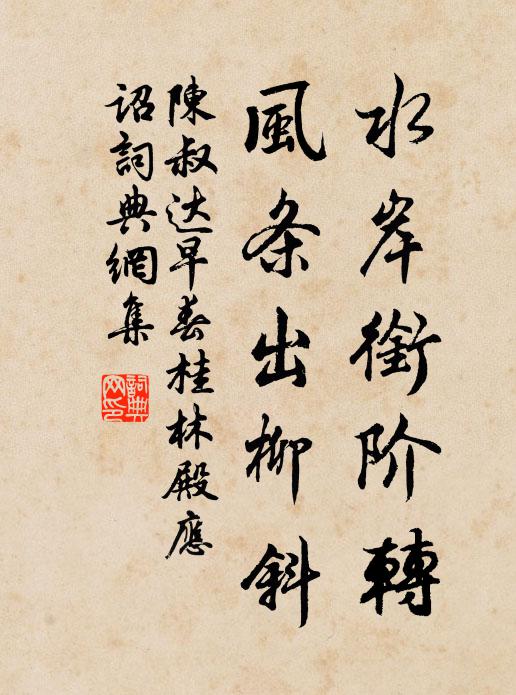 水岸銜阶轉
風条出柳斜
陳叔达早春桂林殿應
詔詞典網集
詞典网印